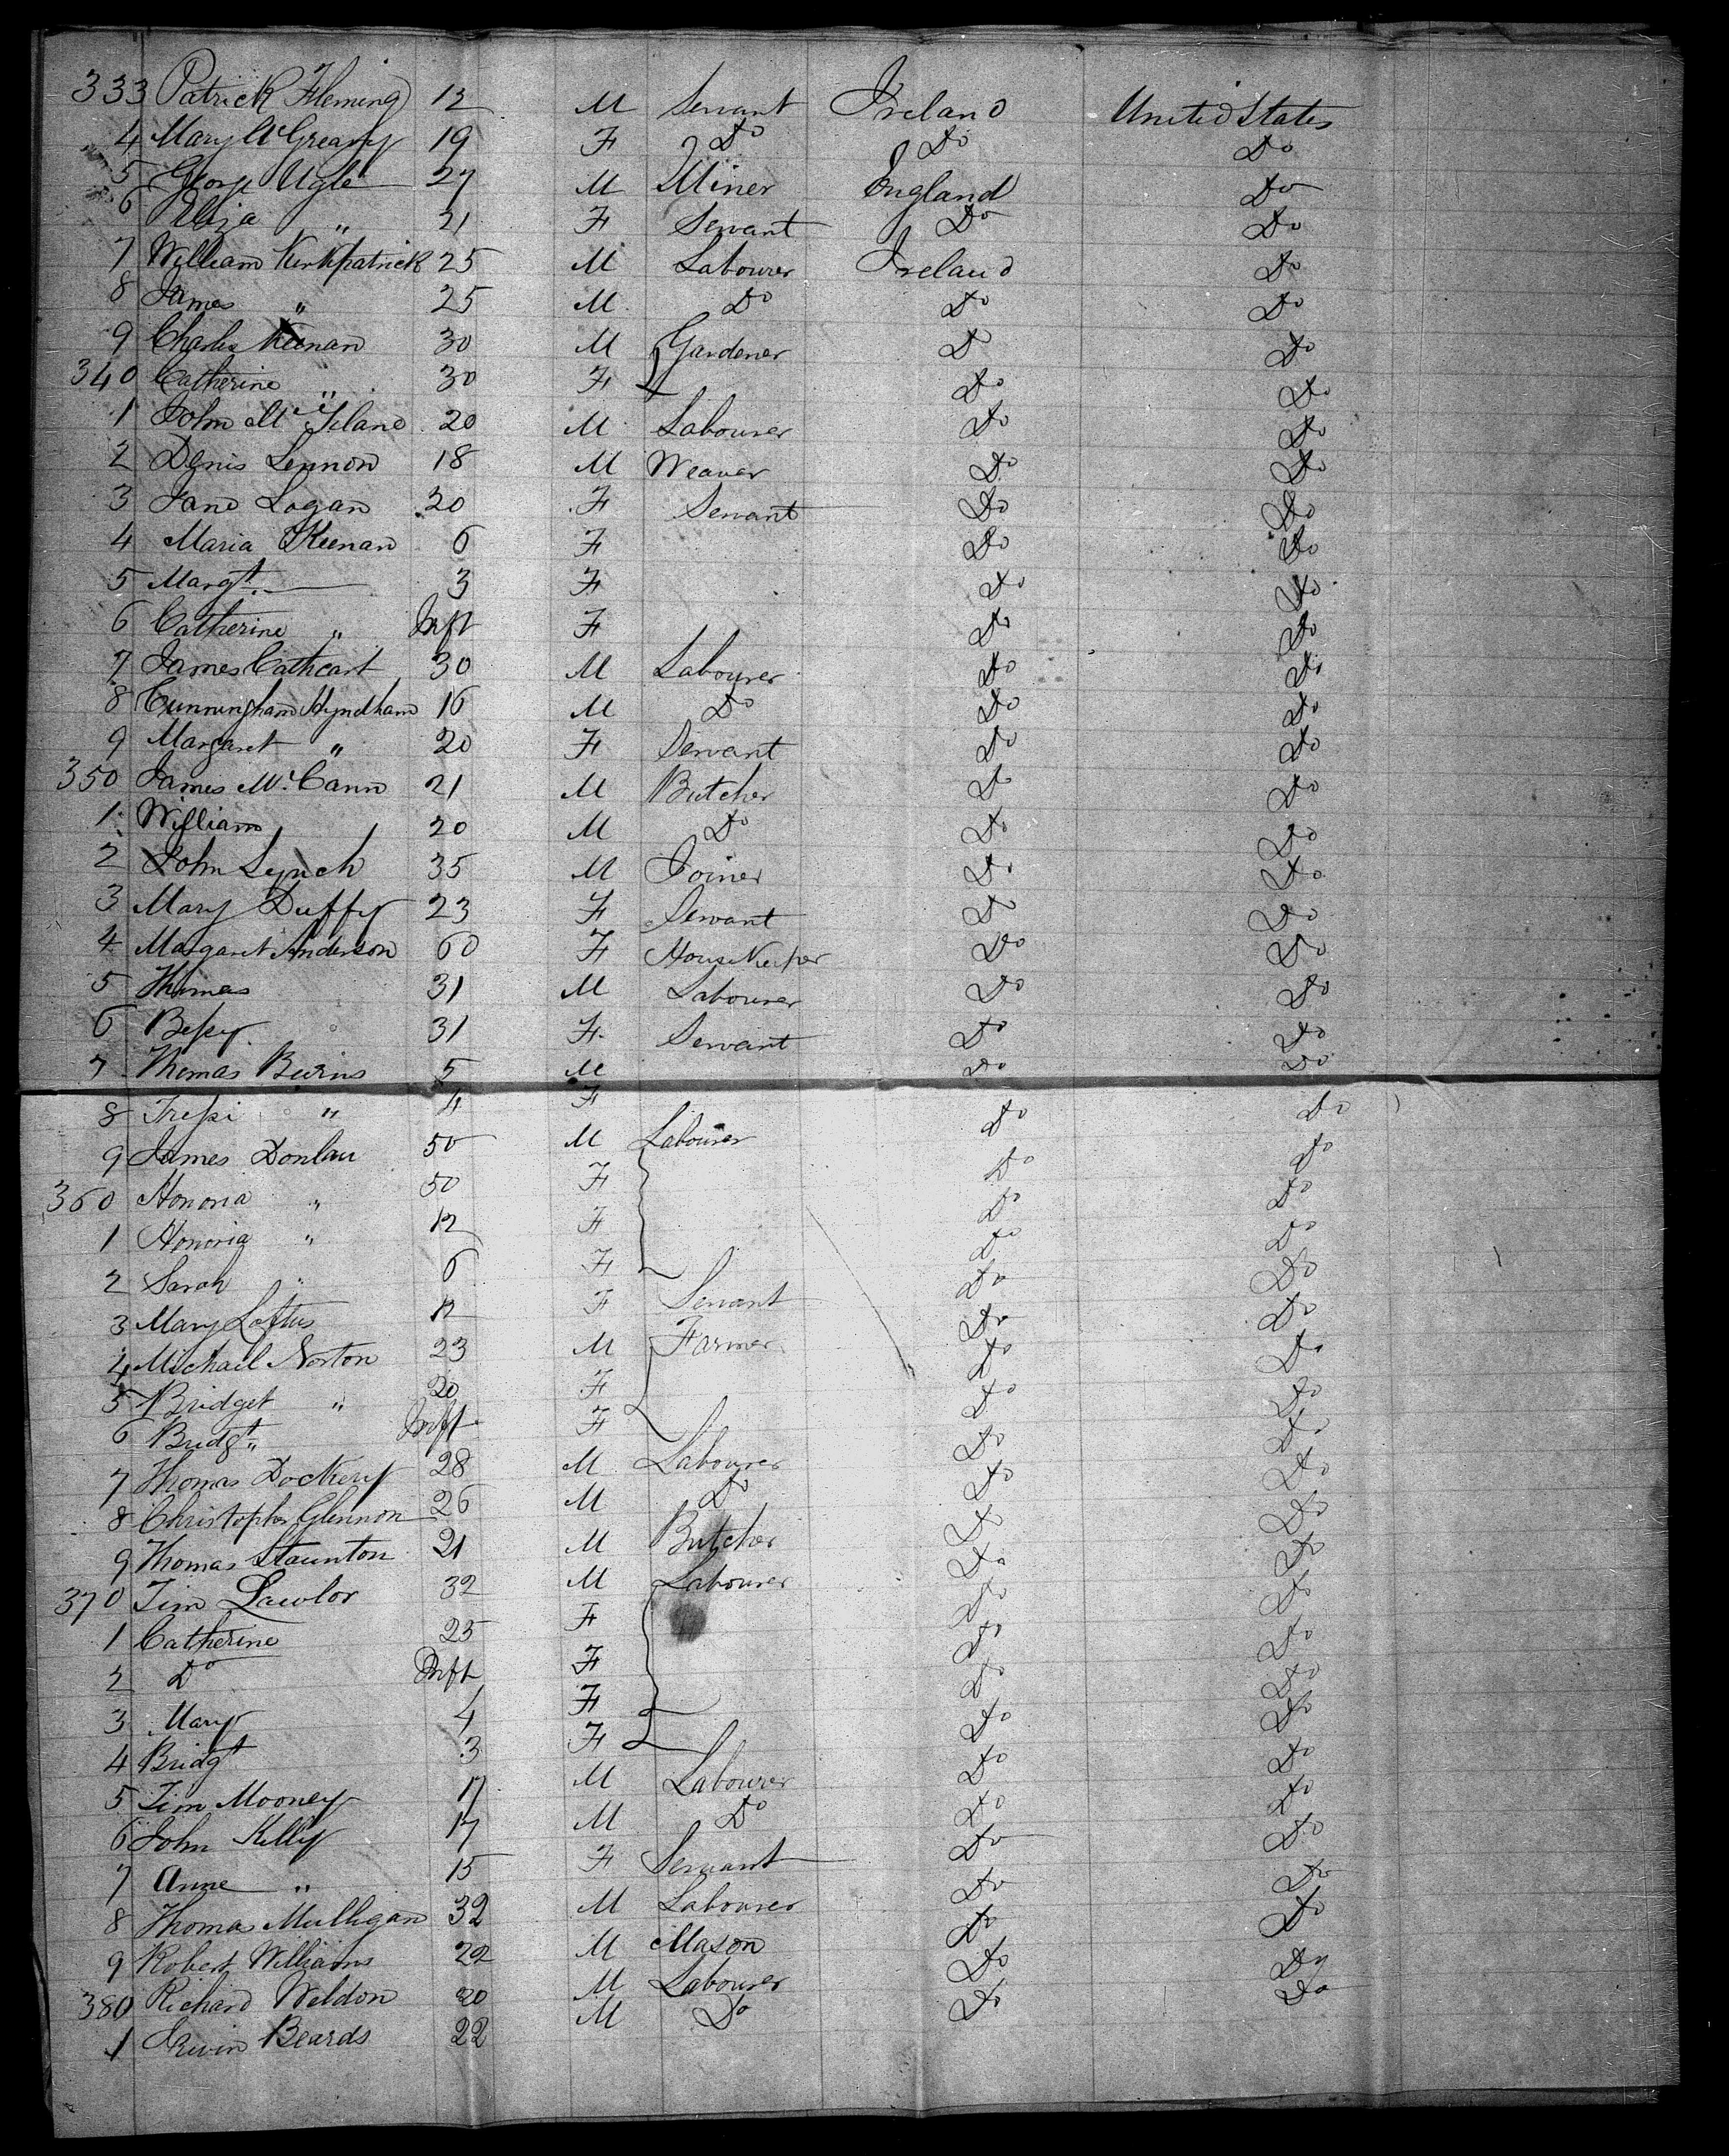 333 Patrick Fleming 12 M Servant Ireland United States
4 Mary McGreavy 19 F Do Do Do
5 George Ugle 27 M Miner England Do
6 Eliza " 21 F Servant Do Do
7 William Kirkpatrick 25 M Labourer Ireland Do
8 James " 25 M Do Do Do
9 Charles Keenan 30 M Gardener Do Do
340 Catherine " 30 F Do Do
1 John Mc 20 M Labourer Do Do
2 Denis Lennon 18 M Weaver Do Do
3 Jane Logan 20 F Servant Do Do
4 Maria Keenan 6 F Do Do
5 Margt. — 3 F Do Do
6 Catherine " Inft F Do Do
7 James Cathcart 30 M Labourer Do Do
8 Cunningham Hyndham 16 M Do Do Do
9 Margaret " 20 F Servant Do Do
350 James McCann 21 M Butcher Do Do
1 William 20 M Do Do Do
2 John Lynch 35 M Joiner Do Do
3 Mary Duffy 23 F Servant Do Do
4 Margaret Anderson 60 F HouseKeeper Do Do
5 Thomas 31 M Labourer Do Do
6 Bessy 31 F. Servant Do Do
7 Thomas Beirns 5 M Do Do
8 " 4 F Do Do
9 James Donlan 50 M Labourer Do Do
360 Honoria " 50 F Do Do
1 Honoria " 12 F Do Do
2 Sarah " 6 F Do Do
3 Mary Loftus 12 F Servant Do Do
4 Michael Norton 23 M Farmer Do Do
5 Bridget " 20 F Do Do
6 Bridgt " Inft F Do Do
7 Thomas Dockery 28 M Labourer Do Do
8 Christopher Glennon 26 M Do Do Do
9 Thomas Staunton 21 M Butcher Do Do
370 Tim Lawlor 32 M Labourer Do Do
1 Catherine 25 F Do Do
2 Do Inft F Do Do
3 Mary 4 F Do Do
4 Bridgt 3 F Do Do
5 Tim Mooney 17 M Labourer Do Do
6 John Kelly 17 M Do Do Do
7 Anne " 15 F Servant Do Do
8 Thomas Mulligan 32 M Labourer Do Do
9 Robert Williams 22 M Mason Do Do
380 Richard Weldon 20 M Labourer Do Do
1 Beards 22 M Do Do Do